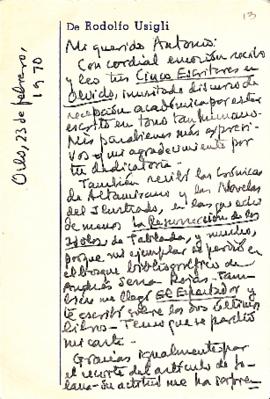 13
De Rodolfo Usigli
Oslo, 23 de febrero,
1970
Mi querido Antonio:
Con cordial emoción recibo
y leo tus Cinco Escritores en
Olvido, inusitado discurso de
recepción académica por estar
escrito en tono tan humano.
Mis parabienes más expresi-
vos y mi agradecimiento por
tu dedicatoria.
También recibí las Crónicas
de Altamirano y las Novelas
del Ilustrado, en las que echo
de menos La Resurrección de los
Idolos de Tablada, y mucho,
porque mi ejemplar se perdió en
el bosque bibliográfico de
Andrés Serra Rojas. Tam-
bién me llegó El Espectador y
te escribí sobre los dos últimos
libros. Temo que se perdió
mi carta.
Gracias igualmente por
el recorte del artículo de So-
lana. Su actitud me ha sorpren-